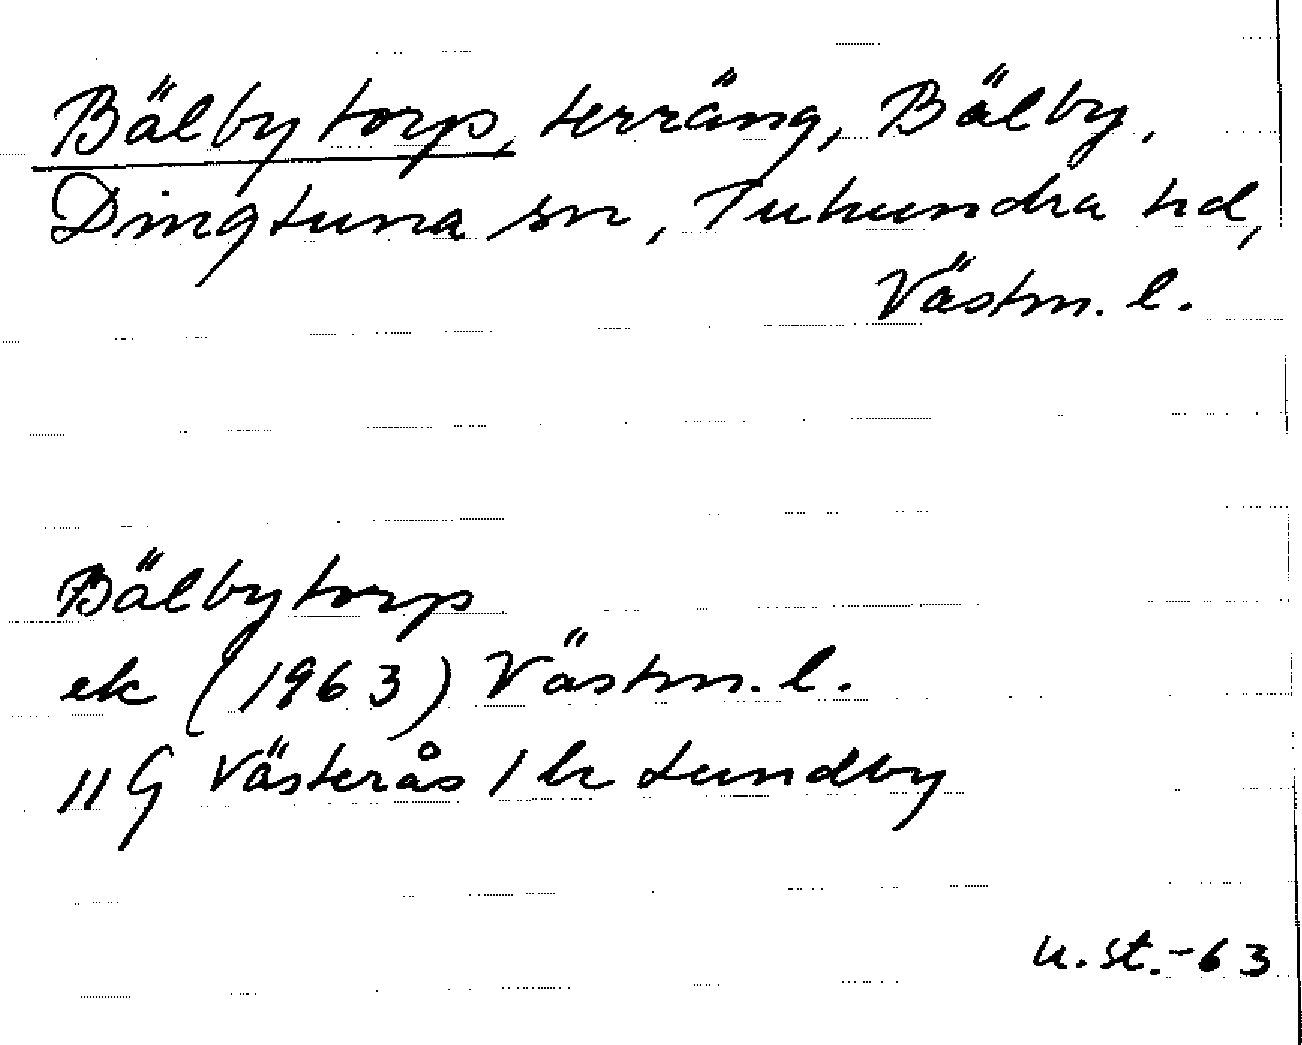 Bälbytorp, terräng, Bälby,
Dingtuna sn, Tuhundra hd,
Västm. l.
Bälbytorp
ek (1963) Västm. l.
11 G Västerås 1 h Lundby
u. st. -63